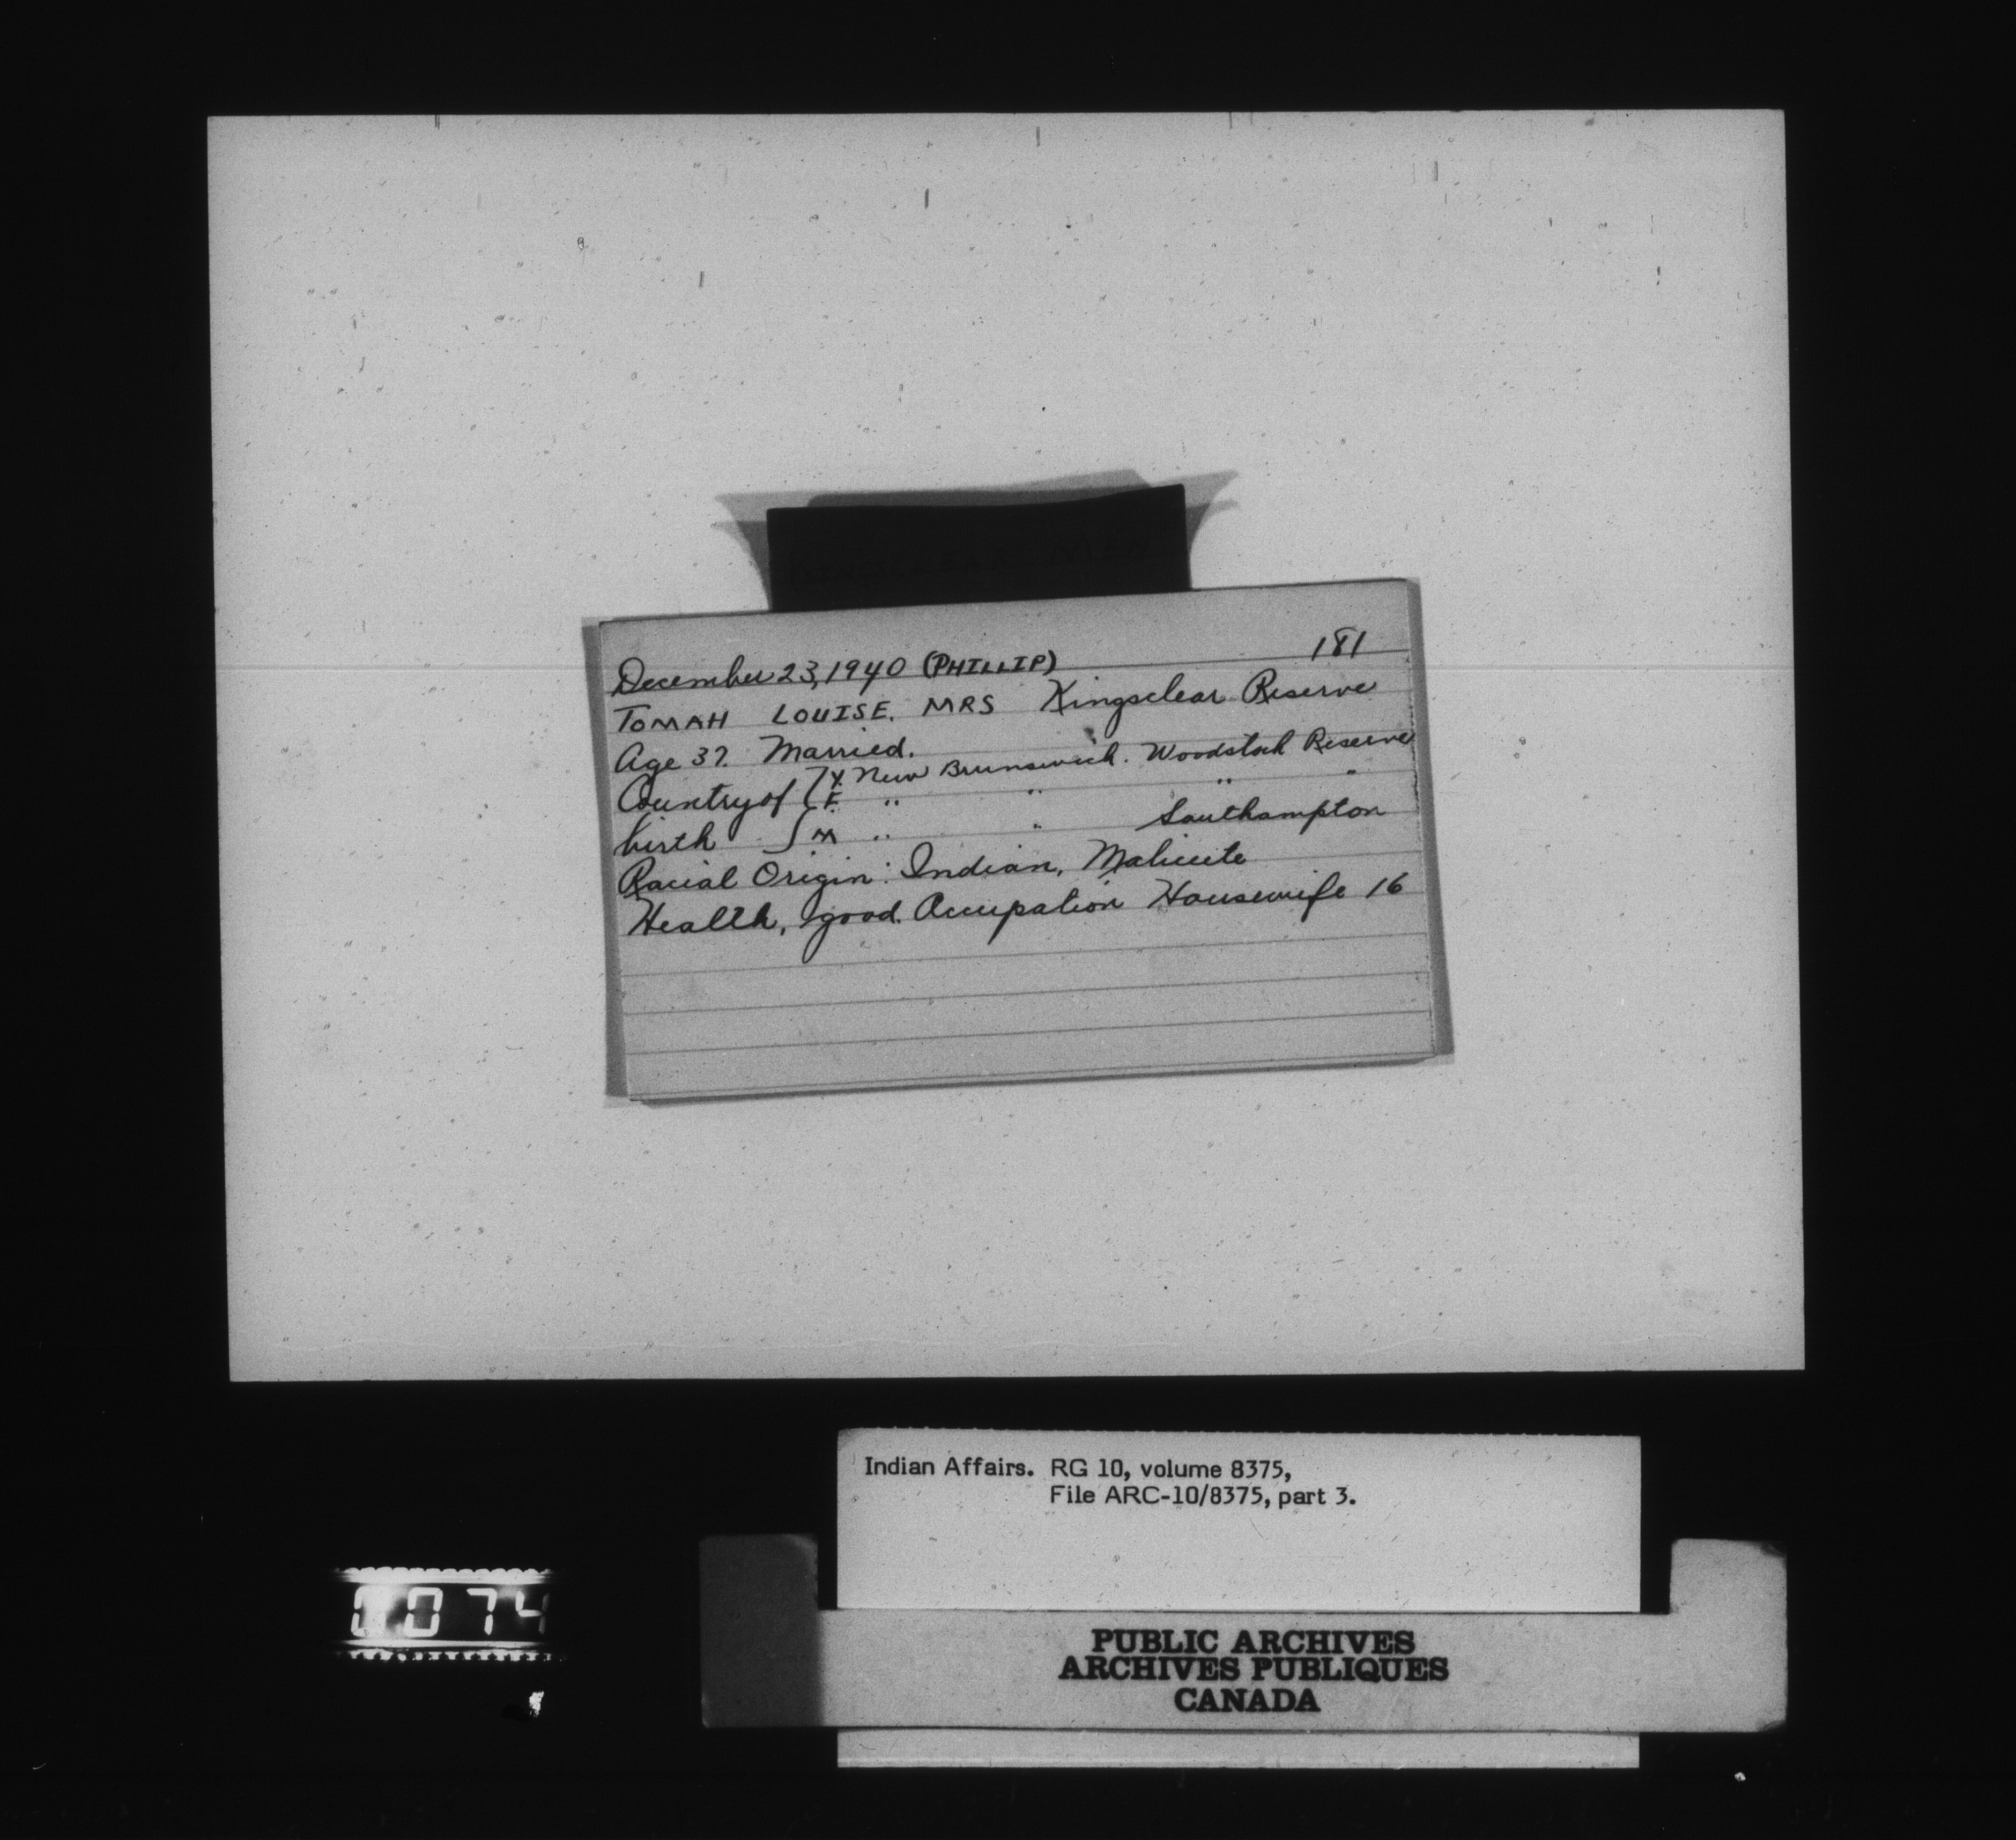 December 23, 1940 (PHILLIP) 181
TOMAH LOUISE. MRS Kingsclear Reserve
Age 37. Married.
Country of Y. New Brunswick. Woodstock Reserve
F. " " " "
birth M " " Southampton
Racial Origin: Indian, Malicite
Health, good. Occupation Housewife 16
Indian Affairs. RG 10, volume 8375,
File ARC-10/8375, part 3.
0074
PUBLIC ARCHIVES
ARCHIVES PUBLIQUES
CANADA